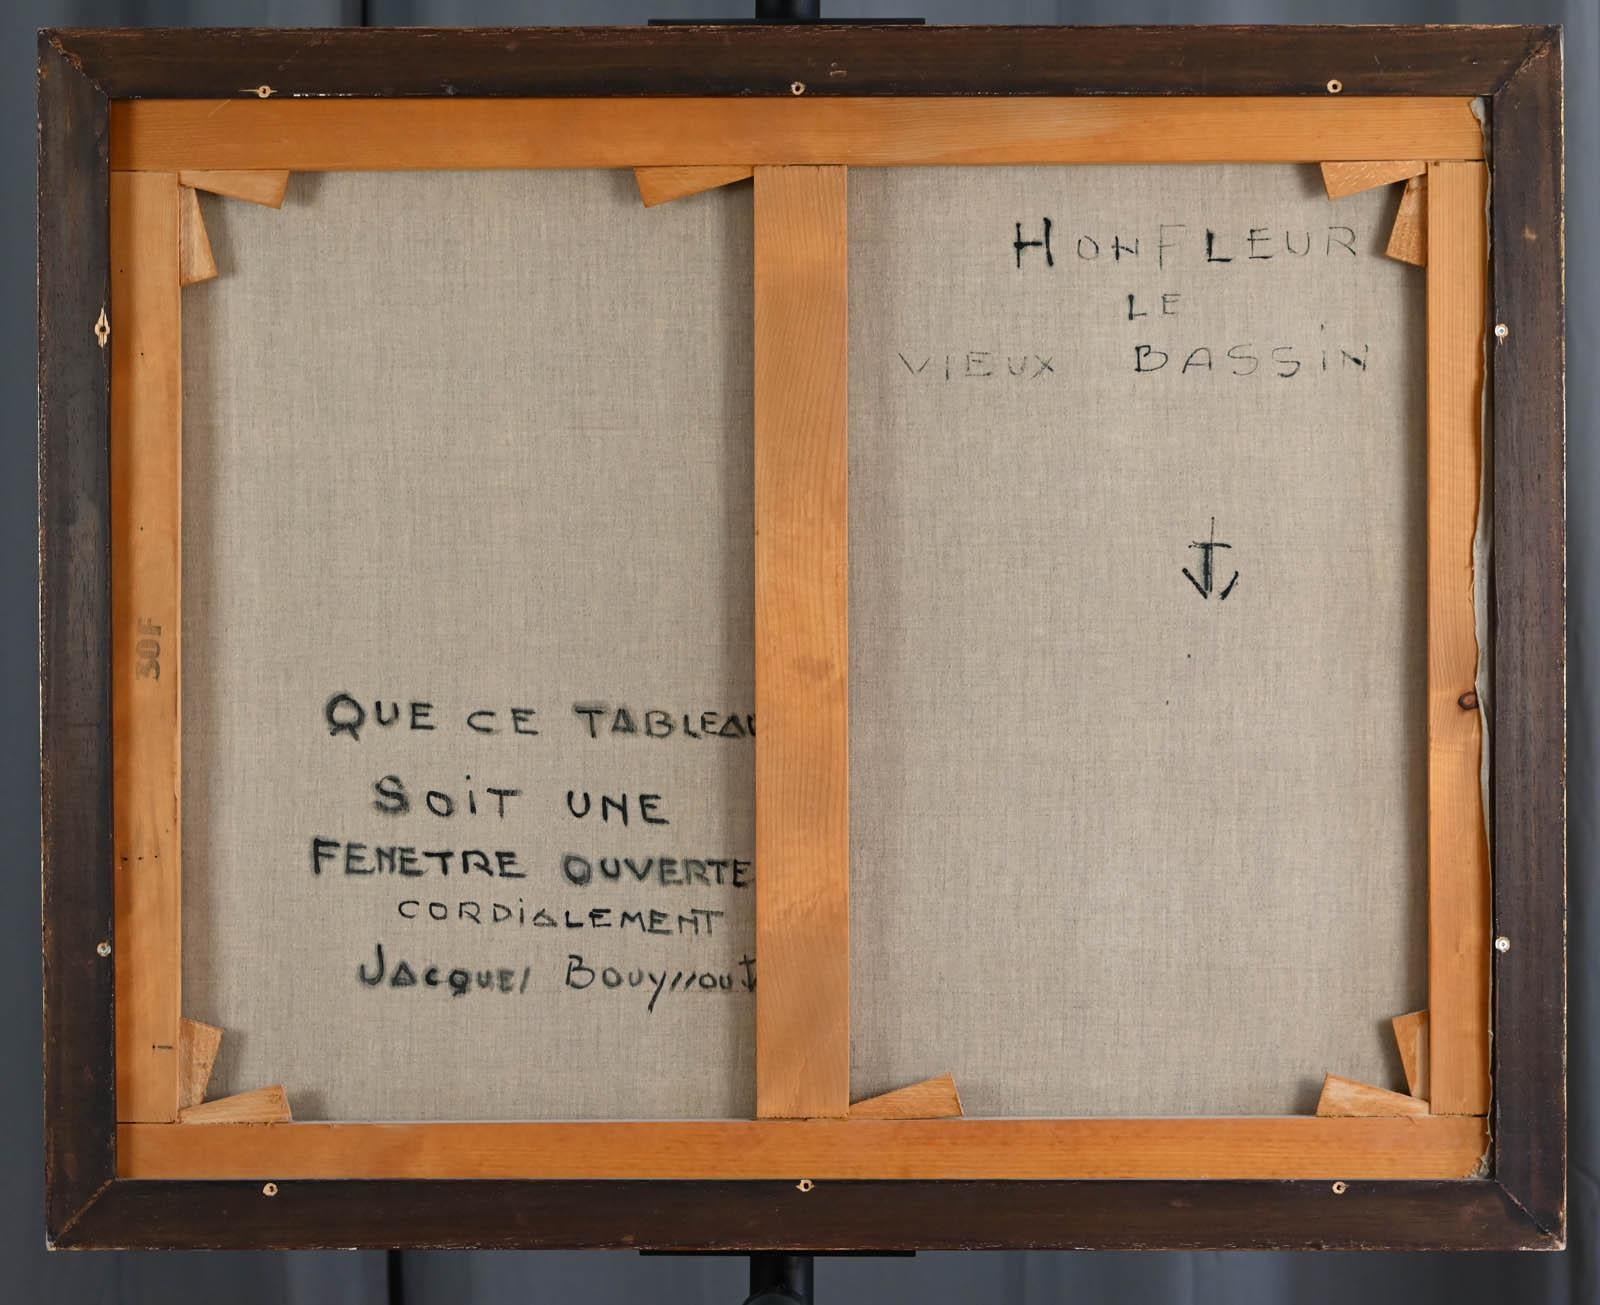 HONFLEUR
LE
VIEUX BASSIN
30F
QUE CE TABLEAU
SOIT UNE
FENETRE OUVERTE
CORDIALEMENT
JACQUES BOUYSSOU